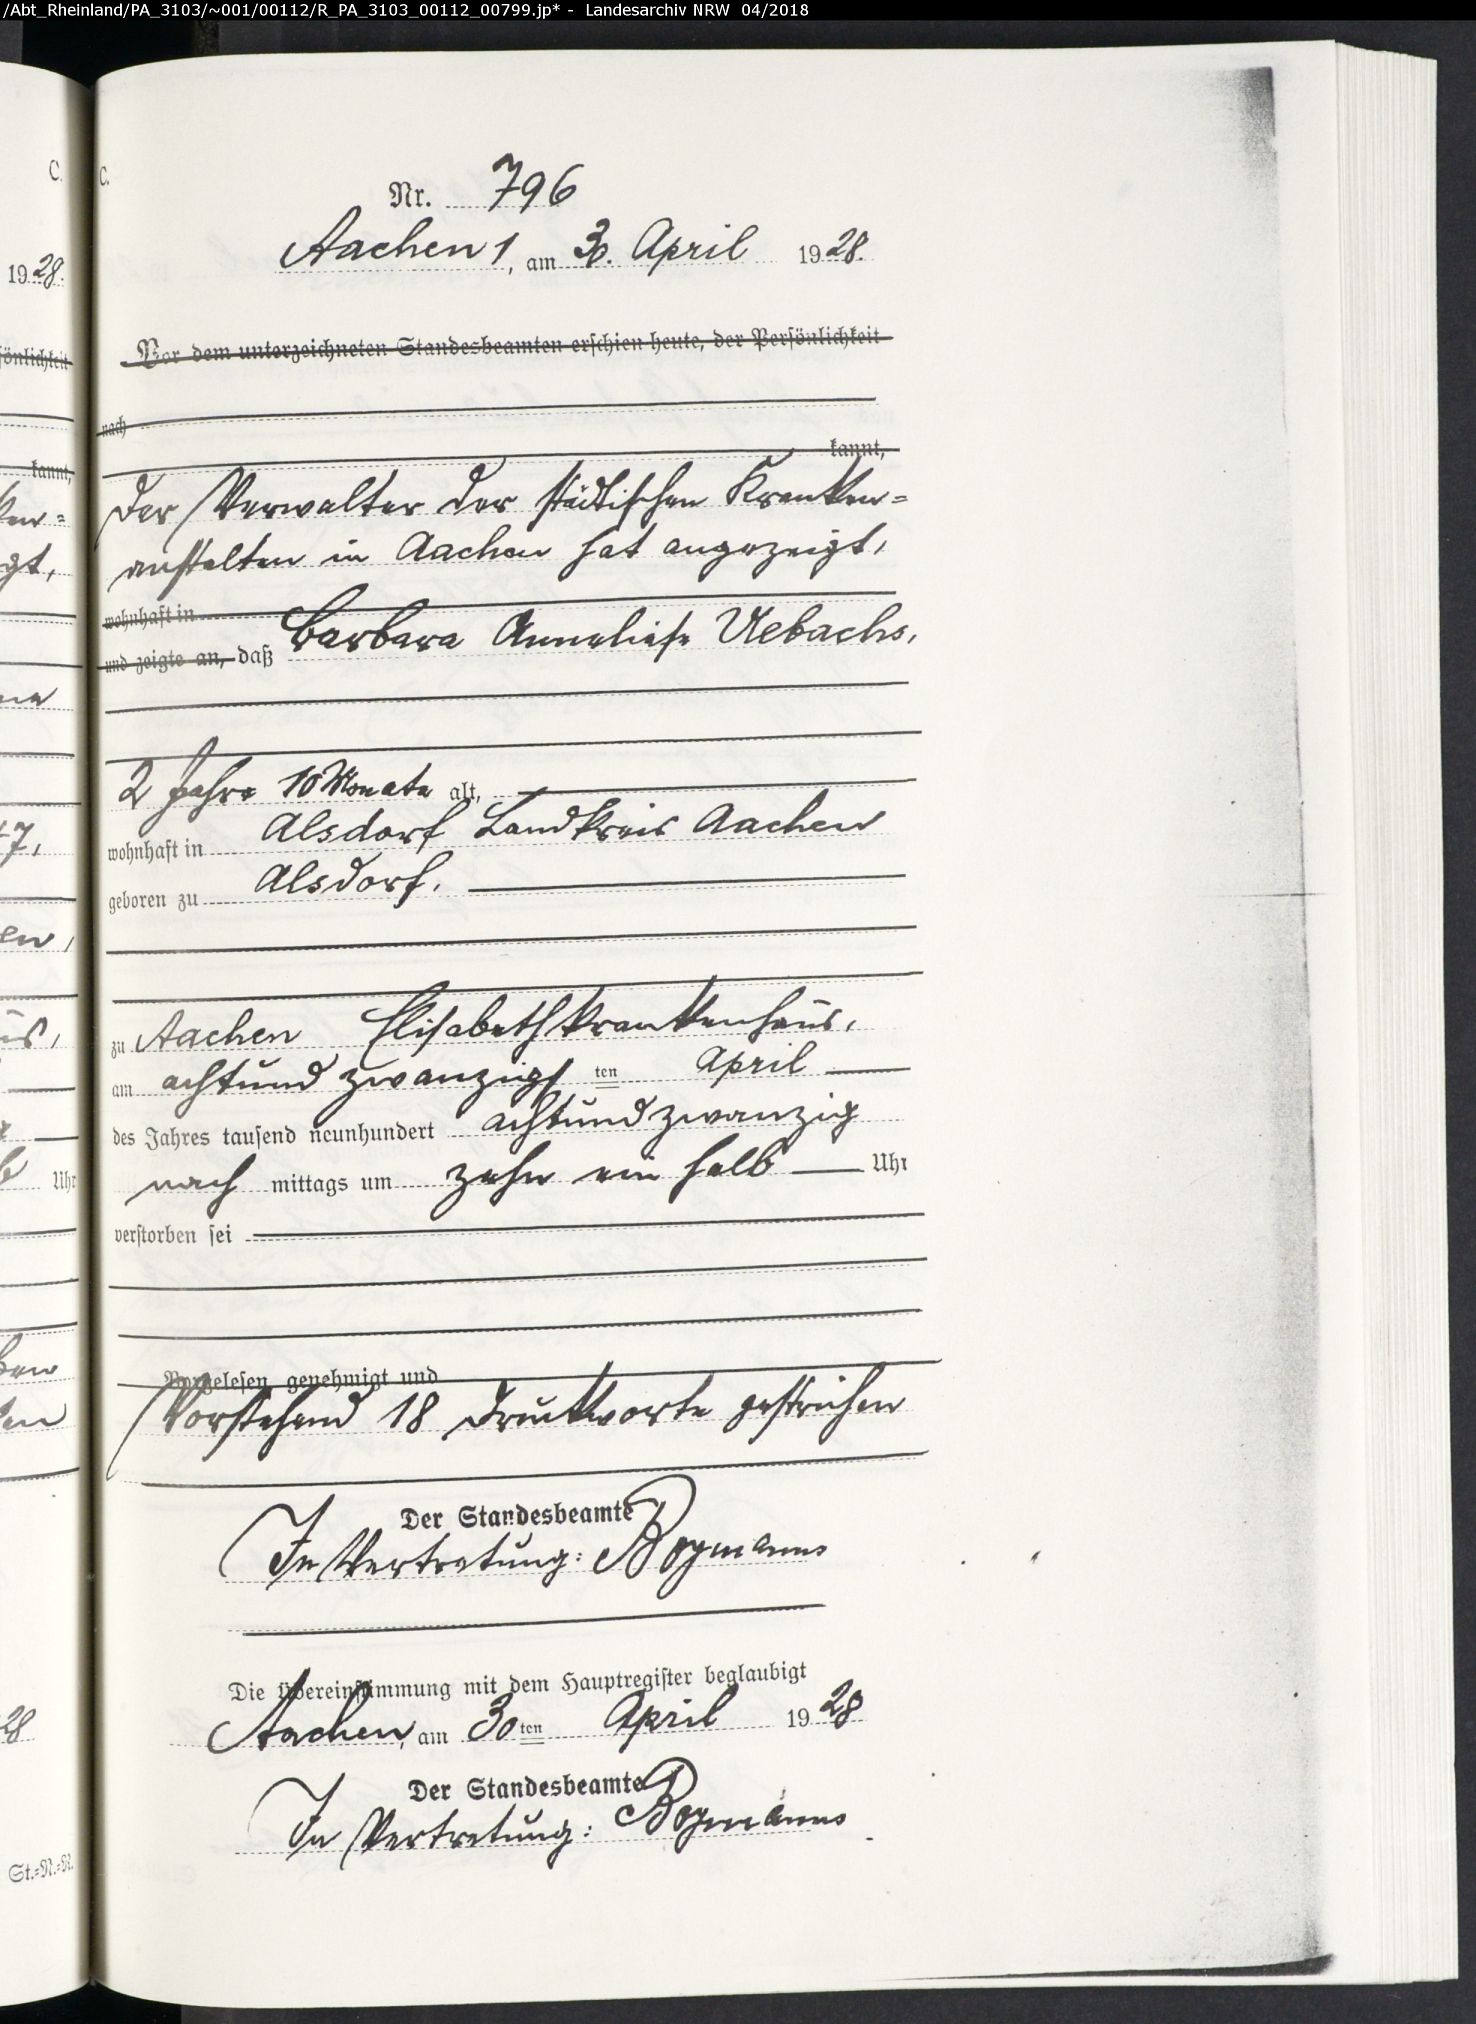 /Abt_Rheinland/PA_3103/~001/00112/R_PA_3103_00112_00799.jp* - Landesarchiv NRW 04/2018
C.
1928.
sönlichkeit
kannt,
gt,
47,
Uhr
28
St.=N.=N.
C.
Nr. 796
Aachen 1, am 30. April 1928.
Vor dem unterzeichneten Standesbeamten erschien heute, der Persönlichkeit
nach
kannt,
Der Verwalter der städtischen Kranken=
anstalten in Aachen hat angezeigt,
wohnhaft in
und zeigte an, daß Barbara Anneliese Uebachs,
2 Jahre 10 Monate alt,
wohnhaft in Alsdorf Landkreis Aachen
geboren zu Alsdorf.
zu Aachen Elisabethkrankenhaus,
am achtundzwanzigsten April
des Jahres tausend neunhundert achtundzwanzig
nachmittags um zehn ein halb Uhr
verstorben sei
Vorgelesen, genehmigt und
Vorstehend 18 Druckworte gestrichen
Der Standesbeamte
In Vertretung:
Die Übereinstimmung mit dem Hauptregister beglaubigt
Aachen, am 30ten April 1928
Der Standesbeamte
In Vertretung: